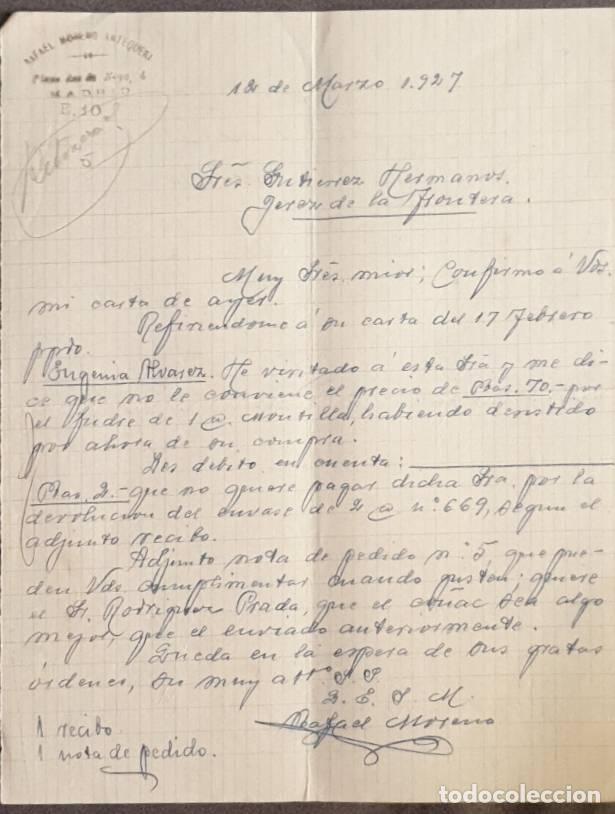 RAFAEL MORENO ANTEQUERA
Plaza Dos de Mayo, 4
MADRID
E. 10
12 de Marzo 1.927
Srēs. Gutierrez Hermanos.
Jerez de la Frontera.
Muy Srēs. mios; Confirmo á Vds.
mi carta de ayer.
Refiriendome á su carta del 17 Febrero
ppdo.
Eugenia Alvarez. He visitado á esta Srā y me di-
ce que no le conviene el precio de Ptas. 70,- por
el Judre de 1 @. Montilla, habiendo desistido
por ahora de su compra.
Les debito en cuenta:
Ptas. 2.- que no quiere pagar dicha Sra. por la
devolución del envase de 2 @ nº 669, segun el
adjunto recibo.
Adjunto nota de pedido nº 5 que pue-
den Vds. cumplimentar cuando gusten; quiere
el Sr. Rodriguez Prada, que el coñac sea algo
mejor, que el enviado anteriormente.
Queda en la espera de sus gratas
órdenes, su muy attº S. S.
Q. E. S. M.
Rafael Moreno
1 recibo.
1 nota de pedido.
todocoleccion.net